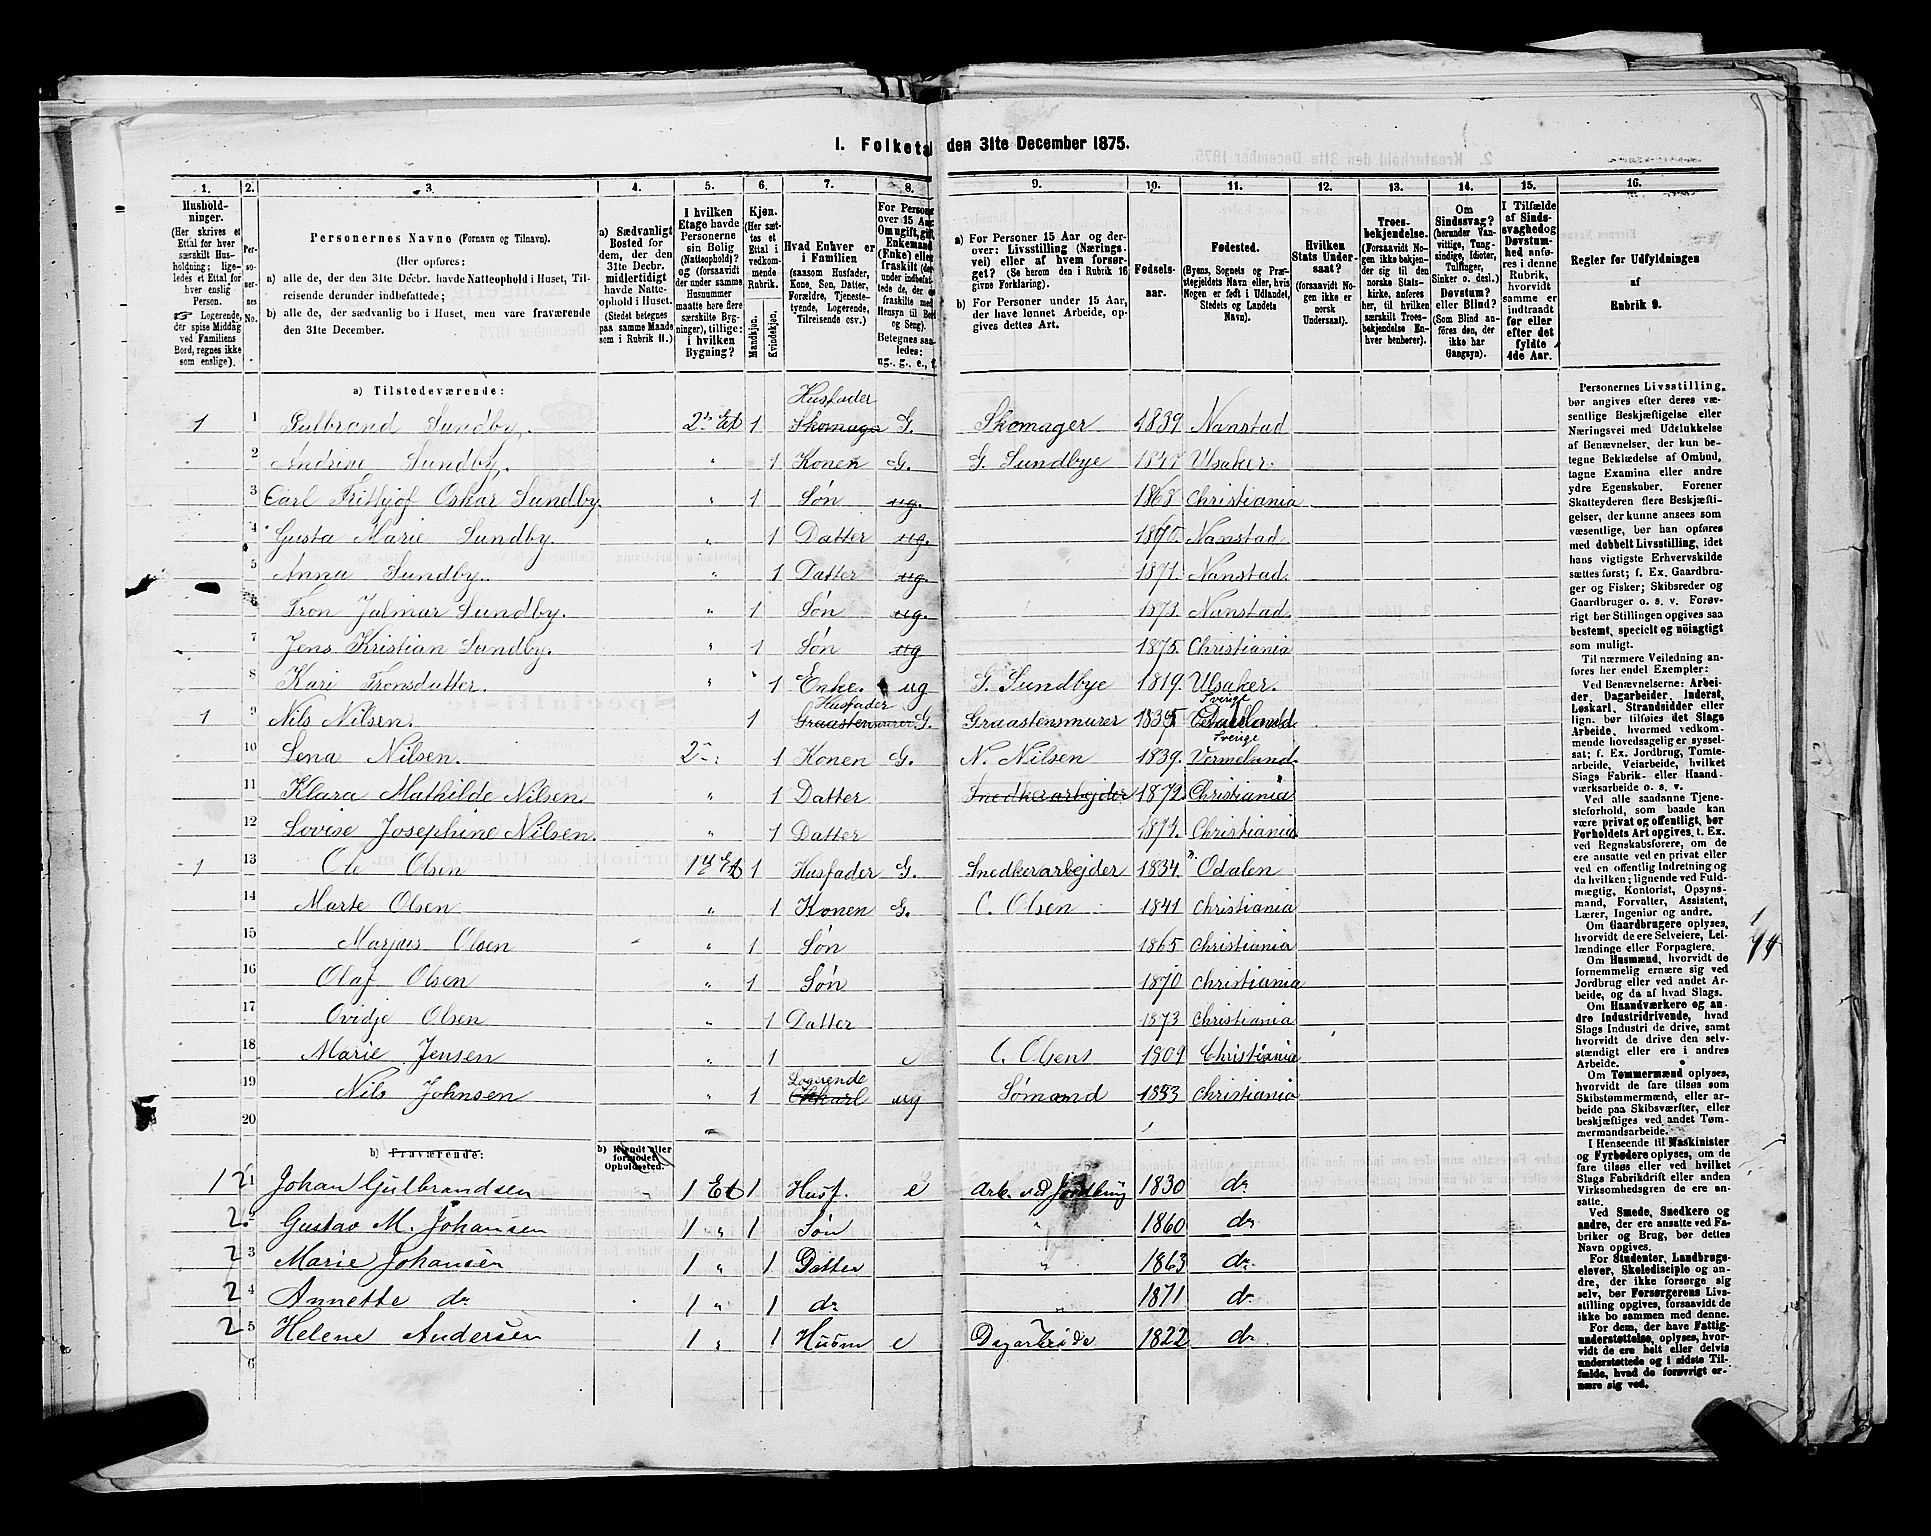 1. Folketal den 31te December 1875.
1. 2. 3. 4. 5. 6. 7. 8. 9. 10. 11. 12. 13. 14. 15. 16.
Hushold-
ninger.
(Her skrives et
Ettal for hver
særskilt Hus-
holdning; lige-
ledes et Ettal for
hver enslig
Person.
☞ Logerende,
der spise Middag
ved Familiens
Bord, regnes ikke
som enslige).
Per-
so-
ner-
nes
No.
Personernes Navne (Fornavn og Tilnavn).
(Her opføres:
a) alle de, der den 31te Decbr. havde Natteophold i Huset, Til-
reisende derunder indbefattede;
b) alle de, der sædvanlig bo i Huset, men vare fraværende
den 31te December.
a) Sædvanligt
Bosted for
dem, der den
31te Decbr.
midlertidigt
havde Natte-
ophold i Huset.
(Stedet betegnes
paa samme Maade
som i Rubrik 11.)
I hvilken
Etage havde
Personerne
sin Bolig
(Natteophold)?
og (forsaavidt
der under samme
Husnummer
maatte høre flere
særskilte Byg-
ninger), tillige:
i hvilken
Bygning?
Kjøn.
(Her sæt-
tes et
Ettal i
vedkom-
mende
Rubrik.
Mandekjøn.
Kvindekjøn.
Hvad Enhver er
i Familien
(saasom Husfader,
Kone, Søn, Datter,
Forældre, Tjeneste-
tyende, Logerende,
Tilreisende osv.)
For Personer
over 15 Aar:
Om ugift, gift,
Enkemand
(Enke) eller
fraskilt (der-
under indbefat-
tede de, der ere
fraskilte med
Hensyn til Bord
og Seng).
Betegnes saa-
ledes:
ug., g., e., f.
a) For Personer 15 Aar og der-
over: Livsstilling (Nærings-
vei) eller af hvem forsør-
get? (Se herom den i Rubrik 16
givne Forklaring).
b) For Personer under 15 Aar,
der have lønnet Arbeide, op-
gives dettes Art.
Fødsels-
aar.
Fødested.
(Byens, Sognets og Præ-
stegjeldets Navn eller, hvis
Nogen er født i Udlandet,
Stedets og Landets
Navn).
Hvilken
Stats Under-
saat?
(forsaavidt No-
gen ikke er
norsk
Undersaat).
Troes-
bekjendelse.
(Forsaavidt No-
gen ikke bekjen-
der sig til den
norske Stats-
kirke, anføres
her, til hvilken
særskilt Troes-
bekjendelse En-
hver henhører).
Om
Sindssvag?
(herunder Van-
vittige, Tung-
sindige, Idioter,
Tullinger,
Sinker o. desl.)
Døvstum?
eller Blind?
(Som Blind an-
føres den, der
ikke har
Gangsyn).
I Tilfælde
af Sinds-
svaghed og
Døvstum-
hed anfø-
res i denne
Rubrik,
hvorvidt
samme er
indtraadt
før eller
efter det
fyldte
4de Aar.
Regler før Udfyldningen
af
Rubrik 9.
a) Tilstedeværende:
Husfader
1 1 Gulbrand Sundby. 2n Et 1 Skomager G. Skomager 1839. Nanstad
2 Andrine Sundby. " 1 Konen G. G. Sundbye 1847 Ulsaker.
3 Carl Frithjof Oskar Sundby. " 1 Søn ug. 1868. Christiania
4 Gusta Marie Sundby. " 1 Datter ug. 1870. Nanstad.
5 Anna Sundby. " 1 Datter ug. 1871. Nanstad.
6 Tron Jalmar Sundby. " 1 Søn ug. 1873. Nanstad.
7 Jens Kristian Sundby. " 1 Søn ug 1875. Christiania
8 Kari Tronsdatter. " 1 Enke. ug G. Sundbye 1819. Ulsaker.
Husfader Sverige
1 9 Nils Nilsen. 1 Graastensmurer G. Graastensmurer 1835
Sverige
10 Lena Nilsen. 2n " 1 Konen G. N. Nilsen 1839. Vermeland.
11 Klara Mathilde Nilsen. " 1 Datter Snedkerarbejder 1872. Christiania
12 Lovise Josephine Nilsen. " 1 Datter 1874. Christiania
1 13 Ole Olsen 1ste Et 1 Husfader G. Snedkerarbejder 1834. Odalen
14 Marte Olsen " 1 Konen G. O. Olsen 1841 Christiania
15 Marjus Olsen " 1 Søn 1865 Christiania
16 Olaf Olsen " 1 Søn 1870 Christiania
17 Ovidje Olsen " 1 Datter 1873 Christiania
18 Marie Jensen " 1 e O. Olsens 1809 Christiania
Logerende
19 Nils Johnsen " 1 ug Sømand 1853 Christiania
20
b) Fraværende:
b) Kjendt eller
formodet
Opholdssted.
1 2 1 Johan Gulbrandsen 1 Et 1 Husf. e Arb. ved Jordbrug 1830 do
2. 2 Gustav M. Johansen 1 " 1 Søn " 1860 do
2 3 Marie Johansen 1 " 1 Datter " 1863 do
2 4 Annette do 1 " 1 do " 1871 do
2 5 Helene Andersen 1 " 1 Husm e Dagarbeide 1822 do
6
Personernes Livsstilling
bør angives efter deres væ-
sentlige Beskjæftigelse eller
Næringsvei med Udelukkelse
af Benævnelser, der kun be-
tegne Beklædelse af Ombud,
tagne Examina eller andre
ydre Egenskaber. Forener
Skatteyderen flere Beskjæfti-
gelser, der kunne ansees som
væsentlige, bør han opføres
med dobbelt Livsstilling, idet
hans vigtigste Erhvervskilde
sættes først; f. Ex. Gaardbru-
ger og Fisker; Skibsreder og
Gaardbruger o. s. v. Forøv-
rigt bør Stillingen opgives saa
bestemt, specielt og nøiagtigt
som muligt.
Til nærmere Veiledning an-
føres her endel Exempler:
Ved Benævnelserne: Arbei-
der, Dagarbeider, Inderst,
Løskarl, Strandsidder eller
lign. bør tilføies det Slags
Arbeide, hvormed vedkom-
mende hovedsagelig er syssel-
sat; f. Ex. Jordbrug, Tomte-
arbeide, Veiarbeide, hvilket
Slags Fabrik- eller Haand-
værksarbeide o. s. v.
Ved alle saadanne Tjene-
steforhold, som baade kan
være privat og offentligt, bør
Forholdets Art opgives, t. Ex.
ved Regnskabsførere, om de
ere ansatte ved en privat eller
en offentlig Indretning og
da hvilken; lignende ved Fuld-
mægtig, Kontorist, Opsyns-
mand, Forvalter, Assistent,
Lærer, Ingeniør og andre.
Om Gaardbrugere oplyses,
hvorvidt de ere Selveiere, Lei-
lændinge eller Forpagtere.
Om Husmænd, hvorvidt de
fornemmelig ernære sig ved
Jordbrug eller ved andet Ar-
beide, og da af hvad Slags.
Om Haandværkere og an-
dre Industridrivende, hvad
Slags Industri de drive, samt
hvorvidt de drive den selv-
stændigt eller ere i andres
Arbeide.
Om Tømmermænd oplyses,
hvorvidt de fare tilsøs som
Skibstømmermænd, eller ar-
beide paa Skibsværfter, eller
beskjæftiges ved andet Tøm-
mermandsarbeide.
I Henseende til Maskinister
og Fyrbødere oplyses, om de
fare tilsøs eller ved hvilket
Slags Fabrikdrift eller anden
Virksomhedsgren de ere an-
satte.
Ved Smede, Snedkere og
andre, der ere ansatte ved Fa-
briker og Brug, bør dettes
Navn opgives.
For Studenter, Landbrugs-
elever, Skoledisciple og an-
dre, der ikke forsørge sig
selv, bør Forsørgerens Livs-
stilling opgives, forsaavidt de
ikke bo sammen med denne.
For dem, der have Fattig-
understøttelse, oplyses, hvor-
vidt de ere helt eller delvis
understøttede og i sidste Til-
fælde, hvad de forøvrigt er-
nære sig ved.